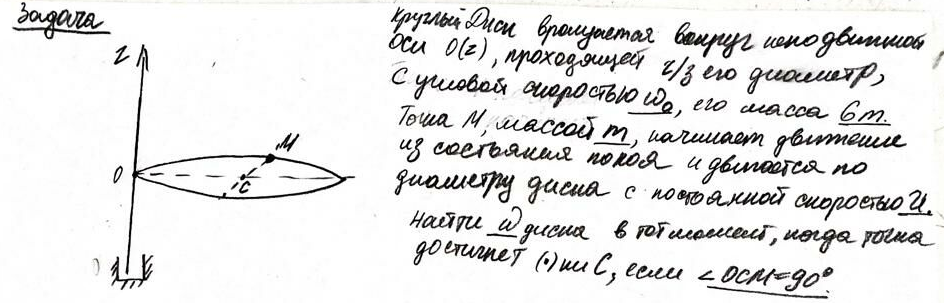 Задача
Круглый Диск вращается вокруг неподвижной
оси O(z), проходящей ч/з его диаметр,
с угловой скоростью ω₀, его масса 6m.
Точка M, массой m, начинает движение
из состояния покоя и двигается по
диаметру диска с постоянной скоростью U.
найти ω диска в тот момент, когда точка
достигнет (•)ки C, если ∠OCM=90°.
z
M
O
C